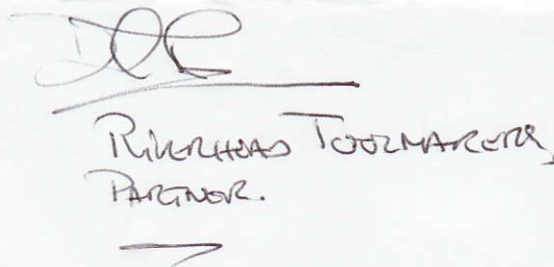 Riverhead Toolmakers,
Partner.